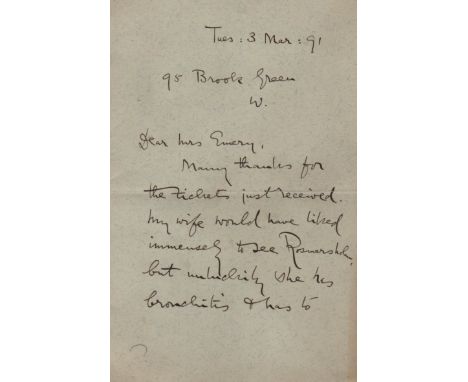 Tues : 3 Mar : 91
95 Brook Green
W.
Dear Mrs Emery,
Many thanks for
the tickets just received.
My wife would have liked
immensely to see Rosmersholm,
but unluckily she has
bronchitis & has to